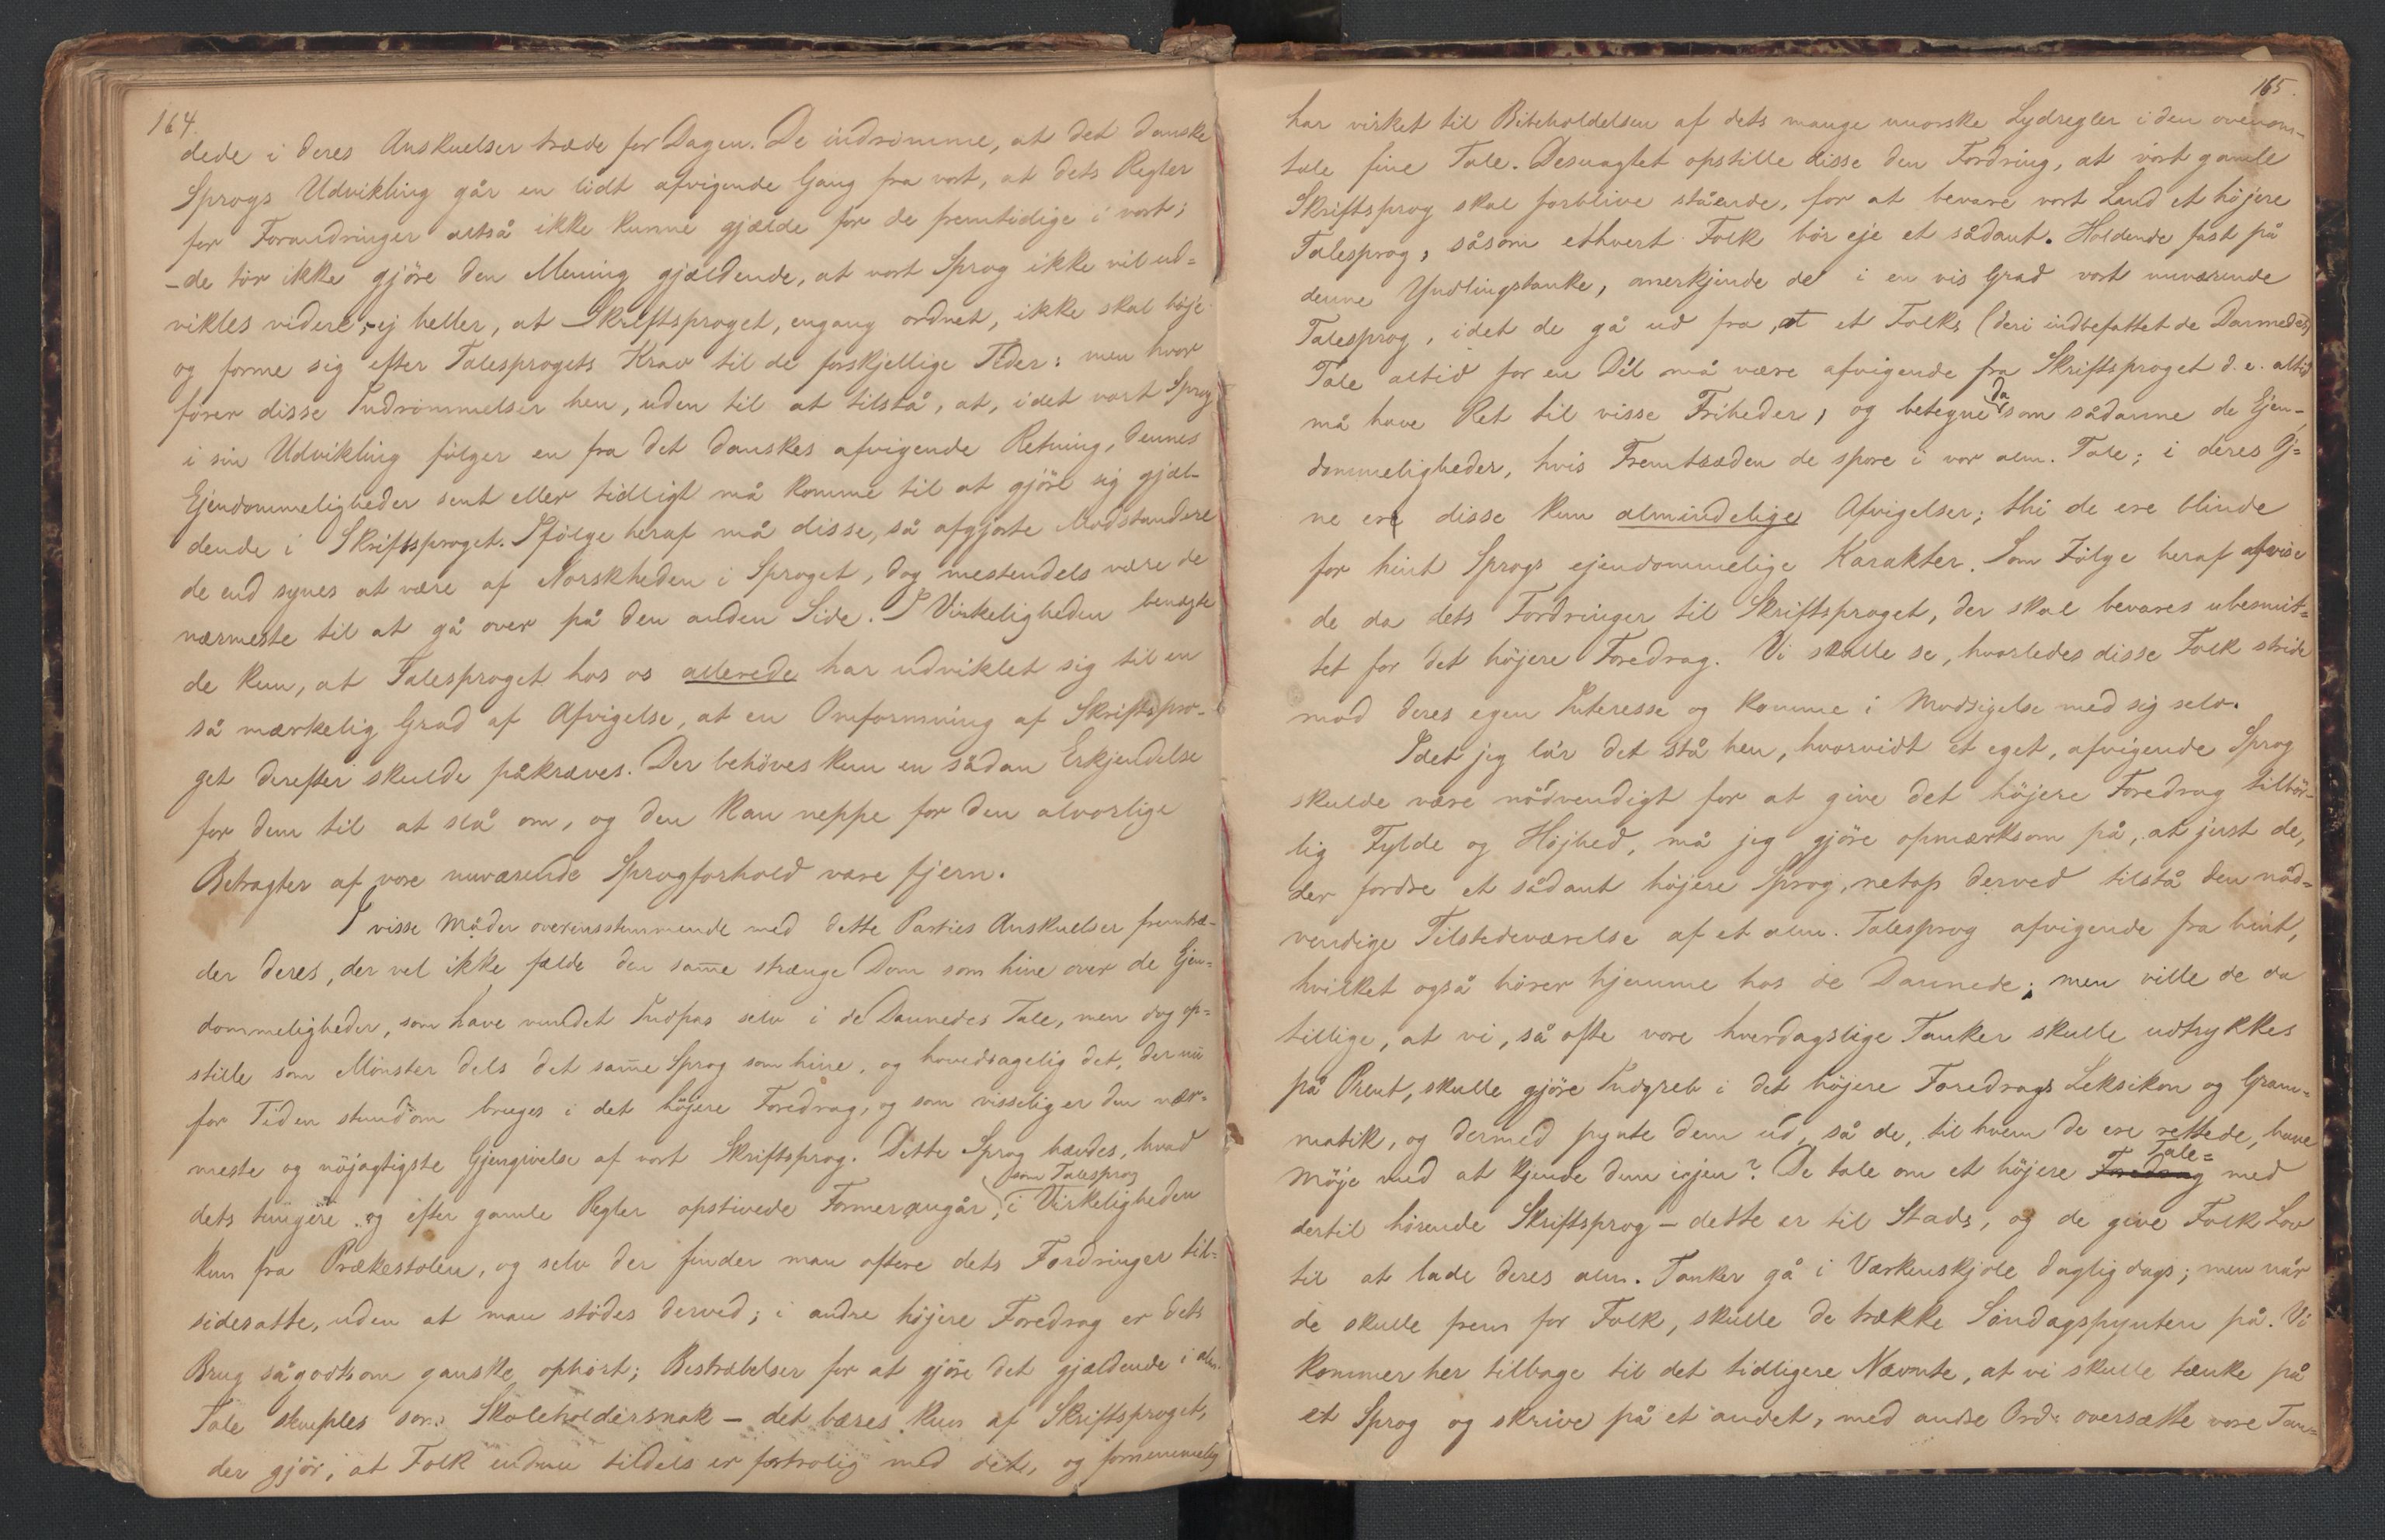 164.
dede i deres Anskuelser træde for Dagen. De indrömme, at det danske
Sprogs Udvikling går en lidt afvigende Gang fra vort, at dets Regler
for Forandringer altså ikke kunne gjælde for de fremtidige i vort;
– de tör ikke gjöre den Mening gjældende, at vort Sprog ikke vil ud=
vikles videre, – ej heller, at Skriftsproget, engang ordnet, ikke skal böje
og forme sig efter Talesprogets Krav til de forskjellige Tider: men hvor
förer disse Indrömmelser hen, uden til at tilstå, at, idet vort Sprog
i sin Udvikling fölger en fra det danskes afvigende Retning, dennes
Ejendommeligheder sent eller tidligt må komme til at gjöre sig gjæl-
dende i Skriftsproget. Ifölge heraf må disse, så afgjorte Modstandere
de end synes at være af Norskheden i Sproget, dog mestendels være de
nærmeste til at gå over på den anden Side. I Virkeligheden benægte
de kun, at Talesproget hos os allerede har udviklet sig til en
så mærkelig Grad af Afvigelse, at en Omformning af Skriftspro-
get derefter skulde påkræves. Der behöves kun en sådan Erkjendelse
for dem til at slå om, og den kan neppe for den alvorlige
Betragter af vore nuværende Sprogforhold være fjern.
I visse Måder overensstemmende med dette Parties Anskuelser fremtræ-
der deres, der vel ikke fælde den sam̄e strænge Dom som hine over de Ejen=
dommeligheder, som have vundet Indpas selv i de Dannedes Tale, men dog op=
stille som Mönster dels det sam̄e Sprog som hine, og hovedsagelig det, der nu
for Tiden stundom bruges i det höjere Foredrag, og som visselig er den nær=
meste og nöjagtigste Gjengivelse af vort Skriftsprog. Dette Sprog hævdes, hvad
som Talesprog
dets tungere og efter gamle Regler opstivede Former angår, i Virkeligheden
kun fra Prækestolen, og selv der finder man oftere dets Fordringer til=
sidesatte, uden at man stödes derved; i andre höjere Foredrag er dets
Brug sågodtsom ganske ophört; Bestræbelser for at gjöre det gjældende i alm.
Tale skuples som Skoleholdersnak – det bæres kun af Skriftsproget,
der gjör, at Folk endnu tildels er fortrolig med dets, og fornemmelig
165.
har virket til Bibeholdelsen af dets mange unorske Lydregler i den ovenom-
tale fine Tale. Desuagtet opstille disse den Fordring, at vort gamle
Skriftsprog skal forblive stående, for at bevare vort Land et höjere
Talesprog, såsom ethvert Folk bör eje et sådant. Holdende fast på
denne Yndlingstanke, anerkjende de i en vis Grad vort nuværende
Talesprog, idet de gå ud fra, at et Folks (deri indbefattet de Dannedes)
Tale altid for en Del må være afvigende fra Skriftsproget d. e. altid
da
må have Ret til visse Friheder, og betegne som sådanne de Ejen-
dommeligheder, hvis Fremtræden de spore i vor alm. Tale; i deres Öj=
ne ere disse kun almindelige Afvigelser; thi de ere blinde
for hint Sprogs ejendommelige Karakter. Som Fölge heraf afvise
de da dets Fordringer til Skriftsproget, der skal bevares ubesmit=
tet for det höjere Foredrag. Vi skulle se, hvorledes disse Folk stride
mod deres egen Interesse og komme i Modsigelse med sig selv.
Idet jeg lår det stå hen, hvorvidt et eget, afvigende Sprog
skulde være nödvendigt for at give det höjere Foredrag tilbör-
lig Fylde og Höjhed, må jeg gjöre opmærksom på, at just de,
der fordre et sådant höjere Sprog, netop derved tilstå den nöd=
vendige Tilstedeværelse af et alm. Talesprog afvigende fra hint,
hvilket også hörer hjemme hos de Dannede; men ville de da
tillige, at vi, så ofte vore hverdagslige Tanker skulle udtrykkes
på Prent, skulle gjöre Indgreb i det höjere Foredrags Leksikon og Gram=
matik, og dermed pynte dem ud, så de, til hvem de ere rettede, have
Tale=
Möje med at kjende dem igjen? De tale om et höjere Foredrag med
dertil hörende Skriftsprog – dette er til Stads, og de give Folk Lov
til at lade deres alm. Tanker gå i Værkenskjole daglig dags; men når
de skulle frem for Folk, skulle de trække Söndagspynten på. Vi
kommer her tilbage til det tidligere Nævnte, at vi skulle tænke på
et Sprog og skrive på et andet, med andre Ord: oversætte vore Tan=